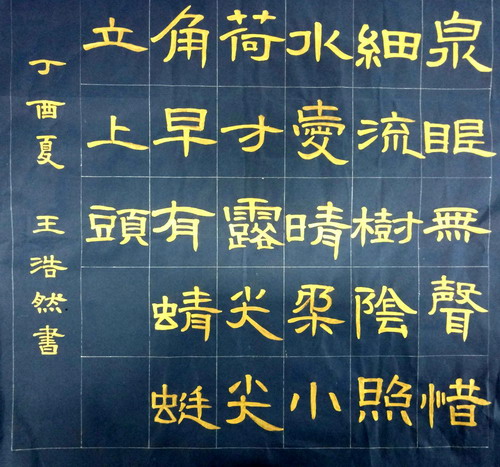 泉眼無聲惜
細流樹陰照
水愛晴柔小
荷才露尖尖
角早有蜻蜓
立上頭
丁酉夏 王浩然書